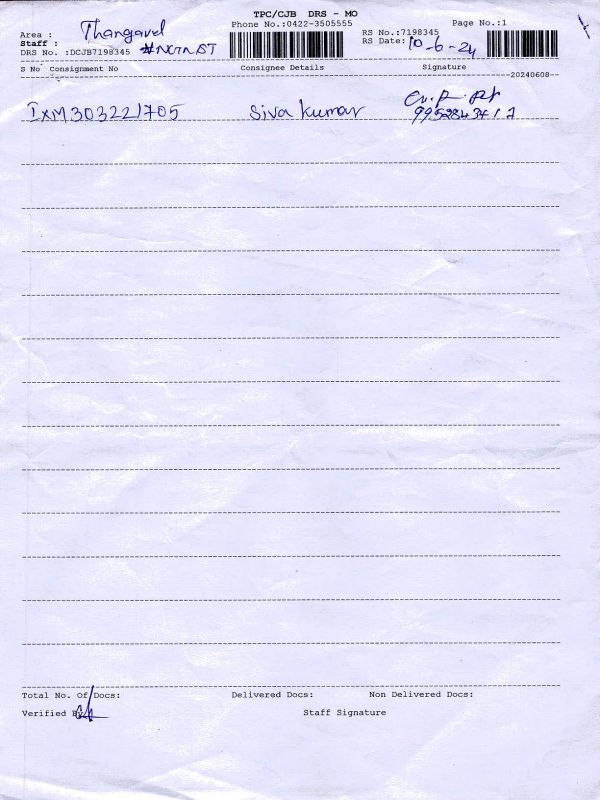 TPC/CJB DRS - MO
Phone No.:0422-3505555
Page No.:1
Area : Thangavel
Staff :
DRS No. :DCJB7198345
RS No.:7198345
RS Date: 10-6-24
S No Consignment No Consignee Details Signature
20240608
IXM303221705 Siva kumar
Total No. Of Docs: Delivered Docs: Non Delivered Docs:
Verified By Staff Signature